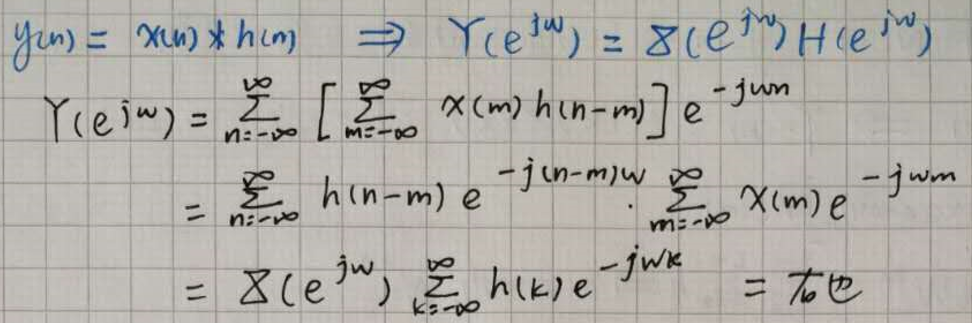 y(n) = x(n) * h(n) ⇒ Y(e^{jw}) = X(e^{jw}) H(e^{jw})
Y(e^{jw}) = \sum_{n=-∞}^{∞} [ \sum_{m=-∞}^{∞} x(m) h(n-m) ] e^{-jwn}
= \sum_{n=-∞}^{∞} h(n-m) e^{-j(n-m)w} · \sum_{m=-∞}^{∞} x(m) e^{-jwm}
= X(e^{jw}) \sum_{k=-∞}^{∞} h(k) e^{-jwk} = 右边